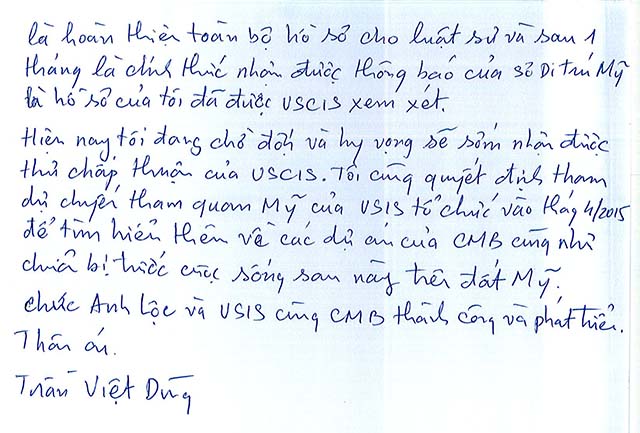 là hoàn thiện toàn bộ hồ sơ cho luật sư và sau 1
tháng là chính thức nhận được thông báo của sở Di trú Mỹ
là hồ sơ của tôi đã được USCIS xem xét.
Hiện nay tôi đang chờ đợi và hy vọng sẽ sớm nhận được
thư chấp thuận của USCIS. Tôi cũng quyết định tham
dự chuyến tham quan Mỹ của USIS tổ chức vào tháng 4/2015
để tìm hiểu thêm về các dự án của CMB cũng như
chuẩn bị trước cuộc sống sau này trên đất Mỹ.
chúc Anh Lộc và USIS cùng CMB thành công và phát triển.
Thân ái.
Trần Việt Dũng